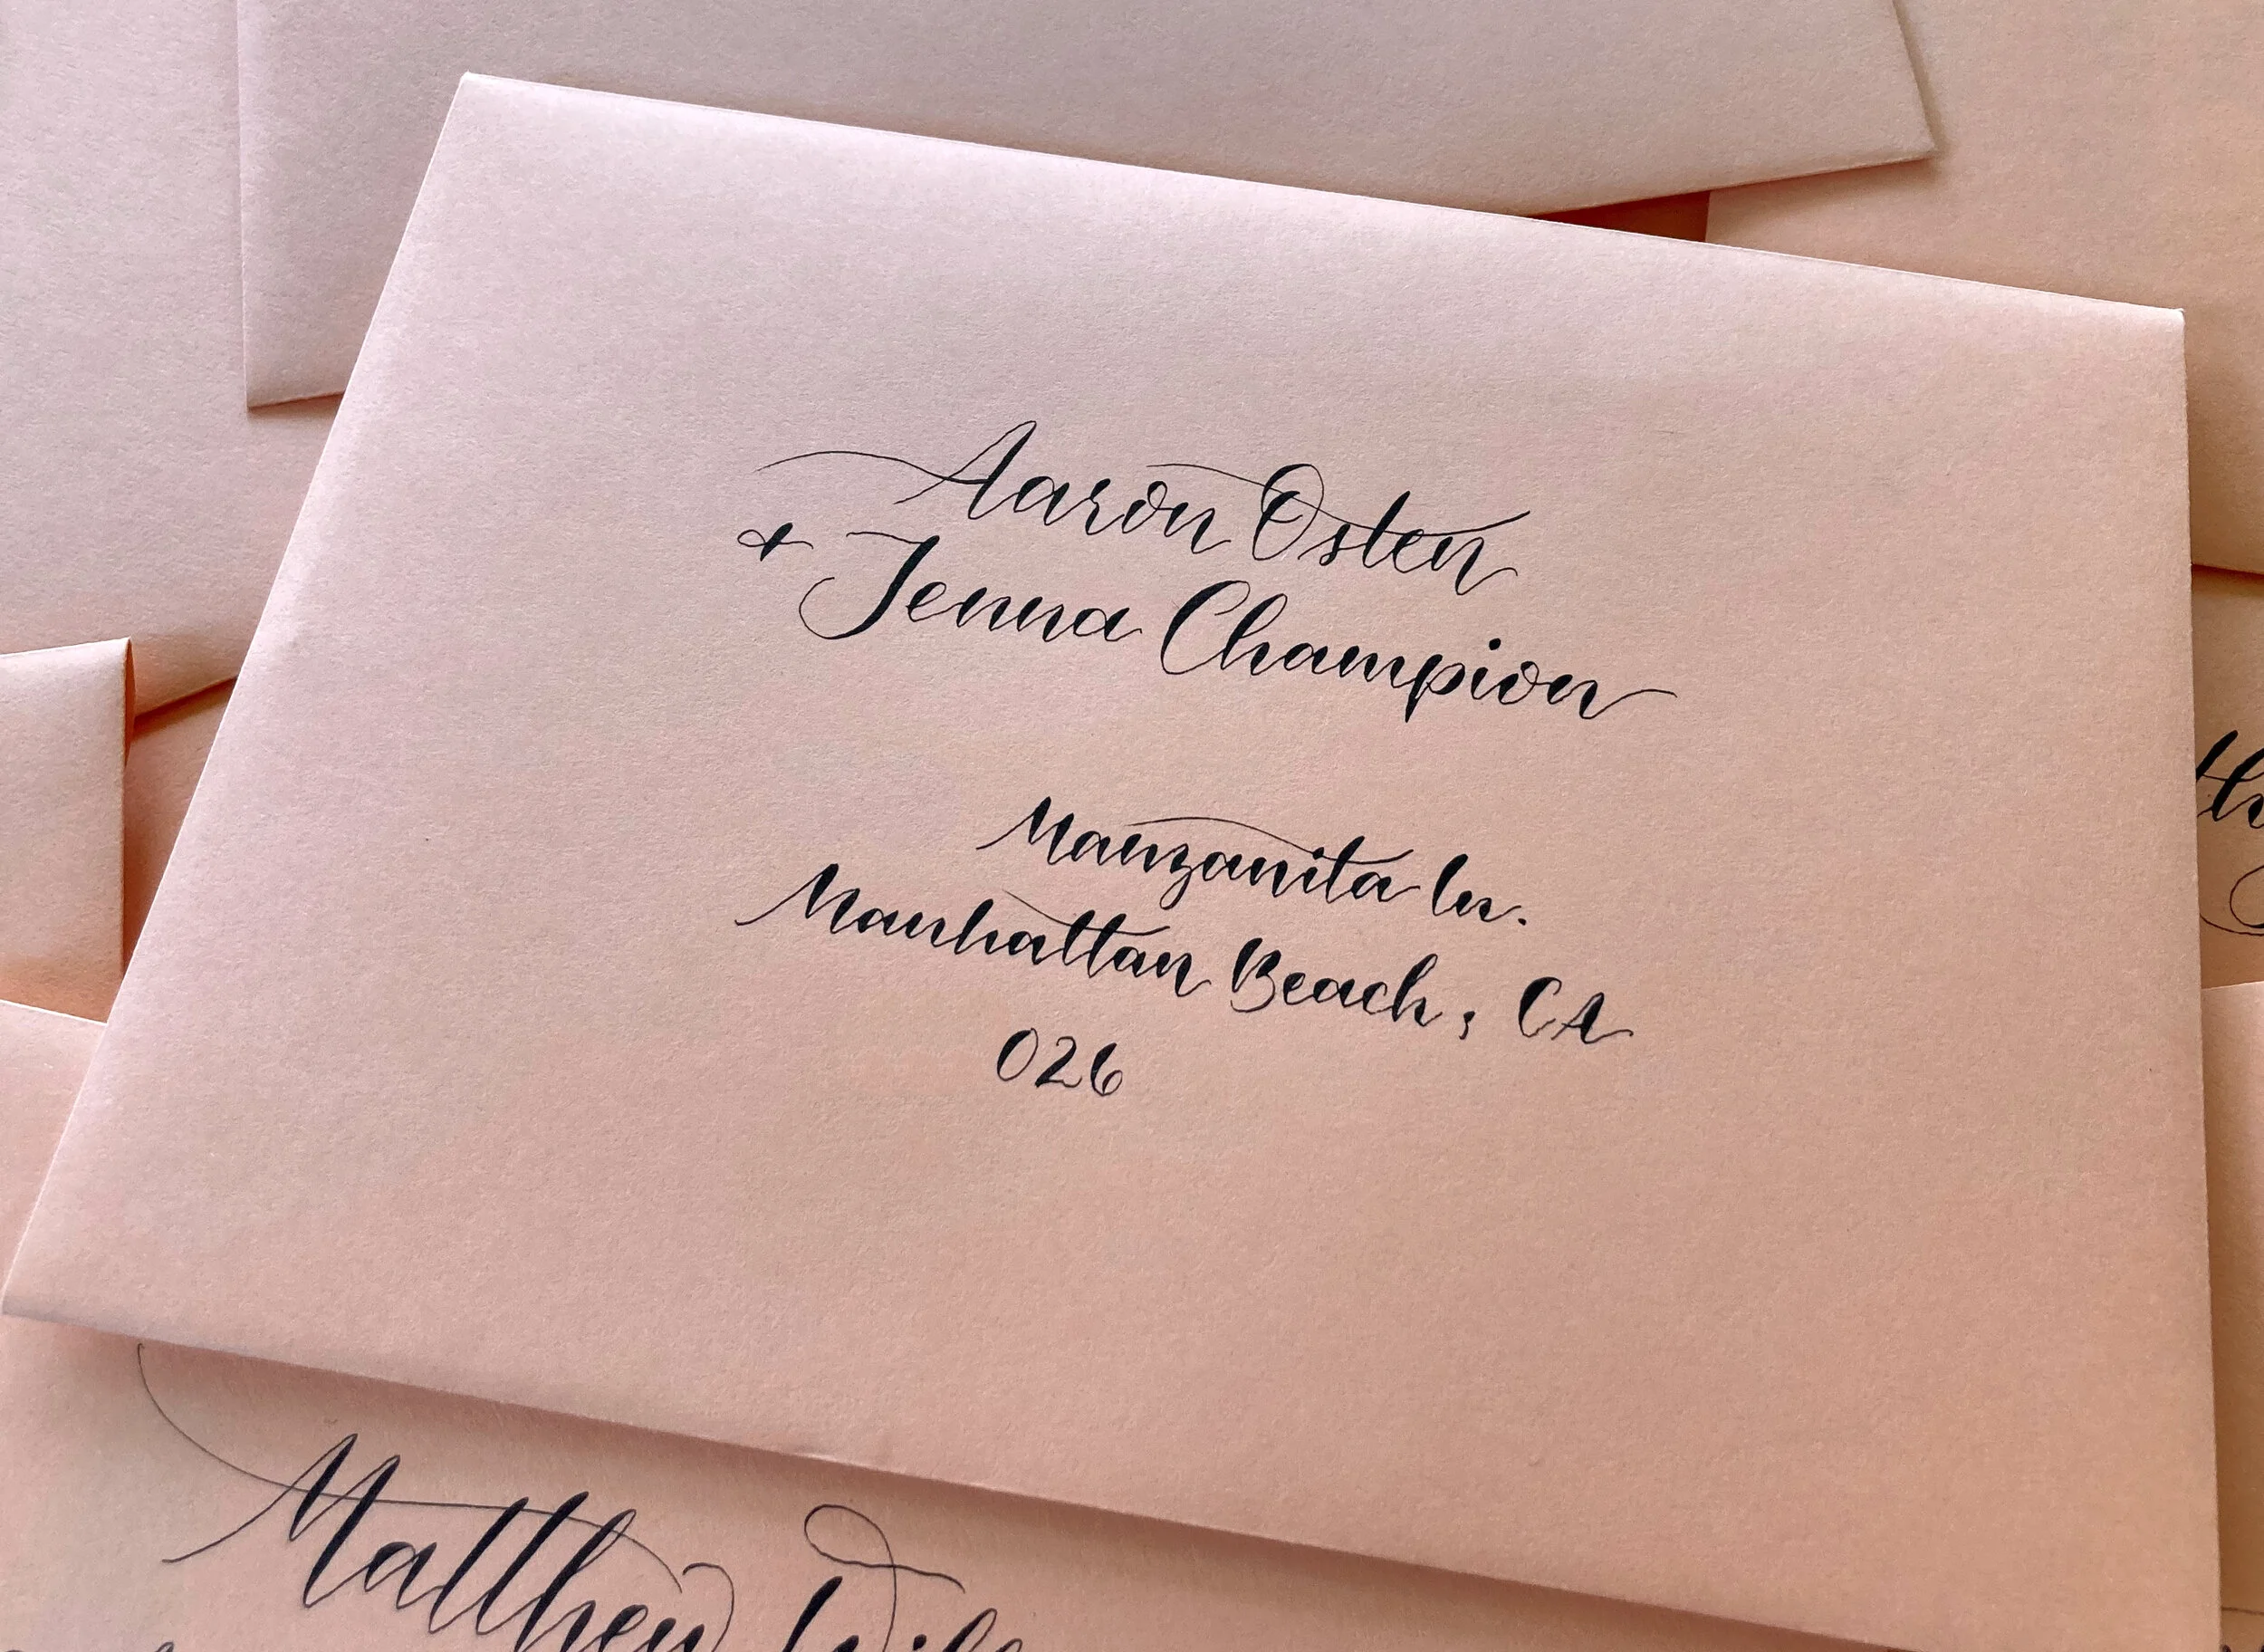 Aaron Osten
+ Jenna Champion
Manzanita ln.
Manhattan Beach, CA
026
Matthew